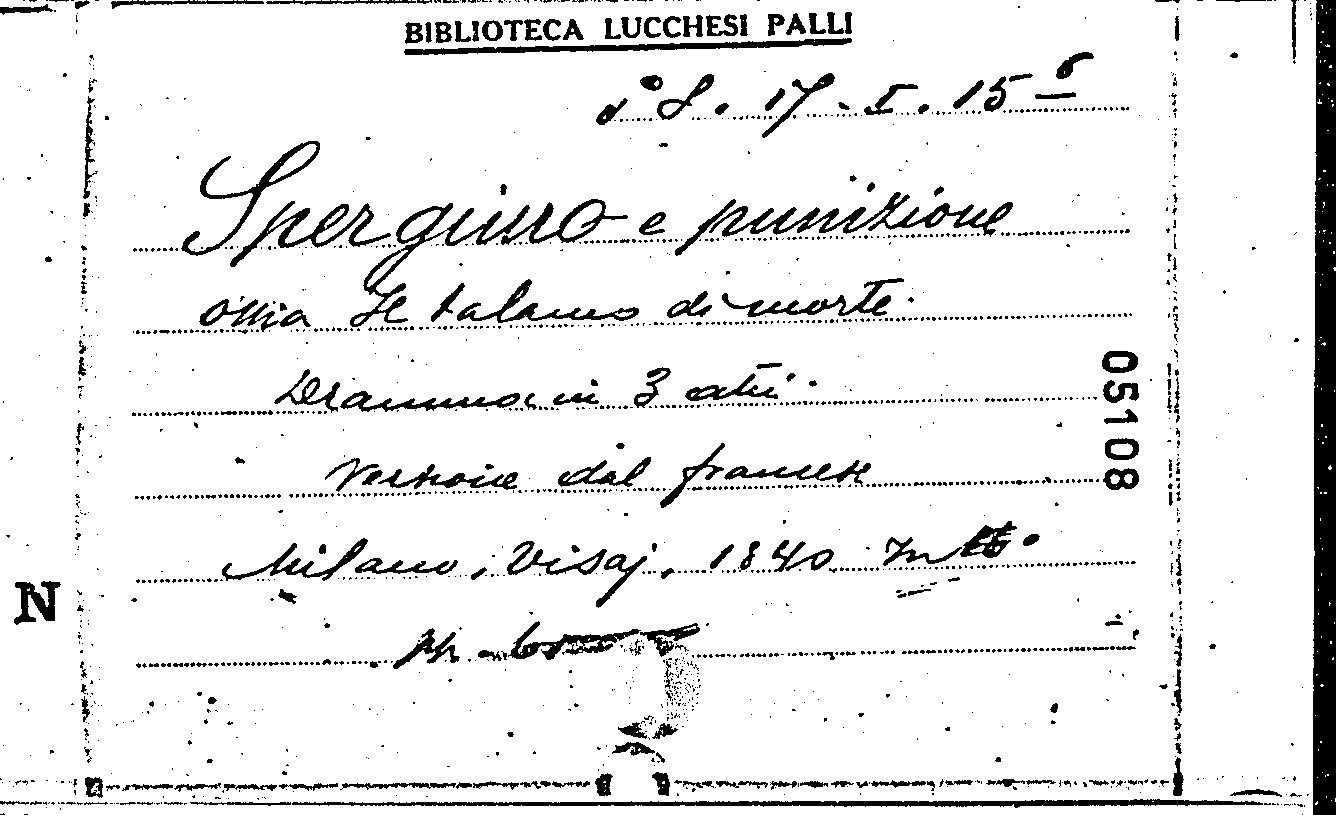 BIBLIOTECA LUCCHESI PALLI
S. 17. I. 15 6
Spergiuro e punizione
ossia Il talamo di morte.
Dramma in 3 atti.
Versione dal francese
Milano, Visaj, 1840 In
05108
N